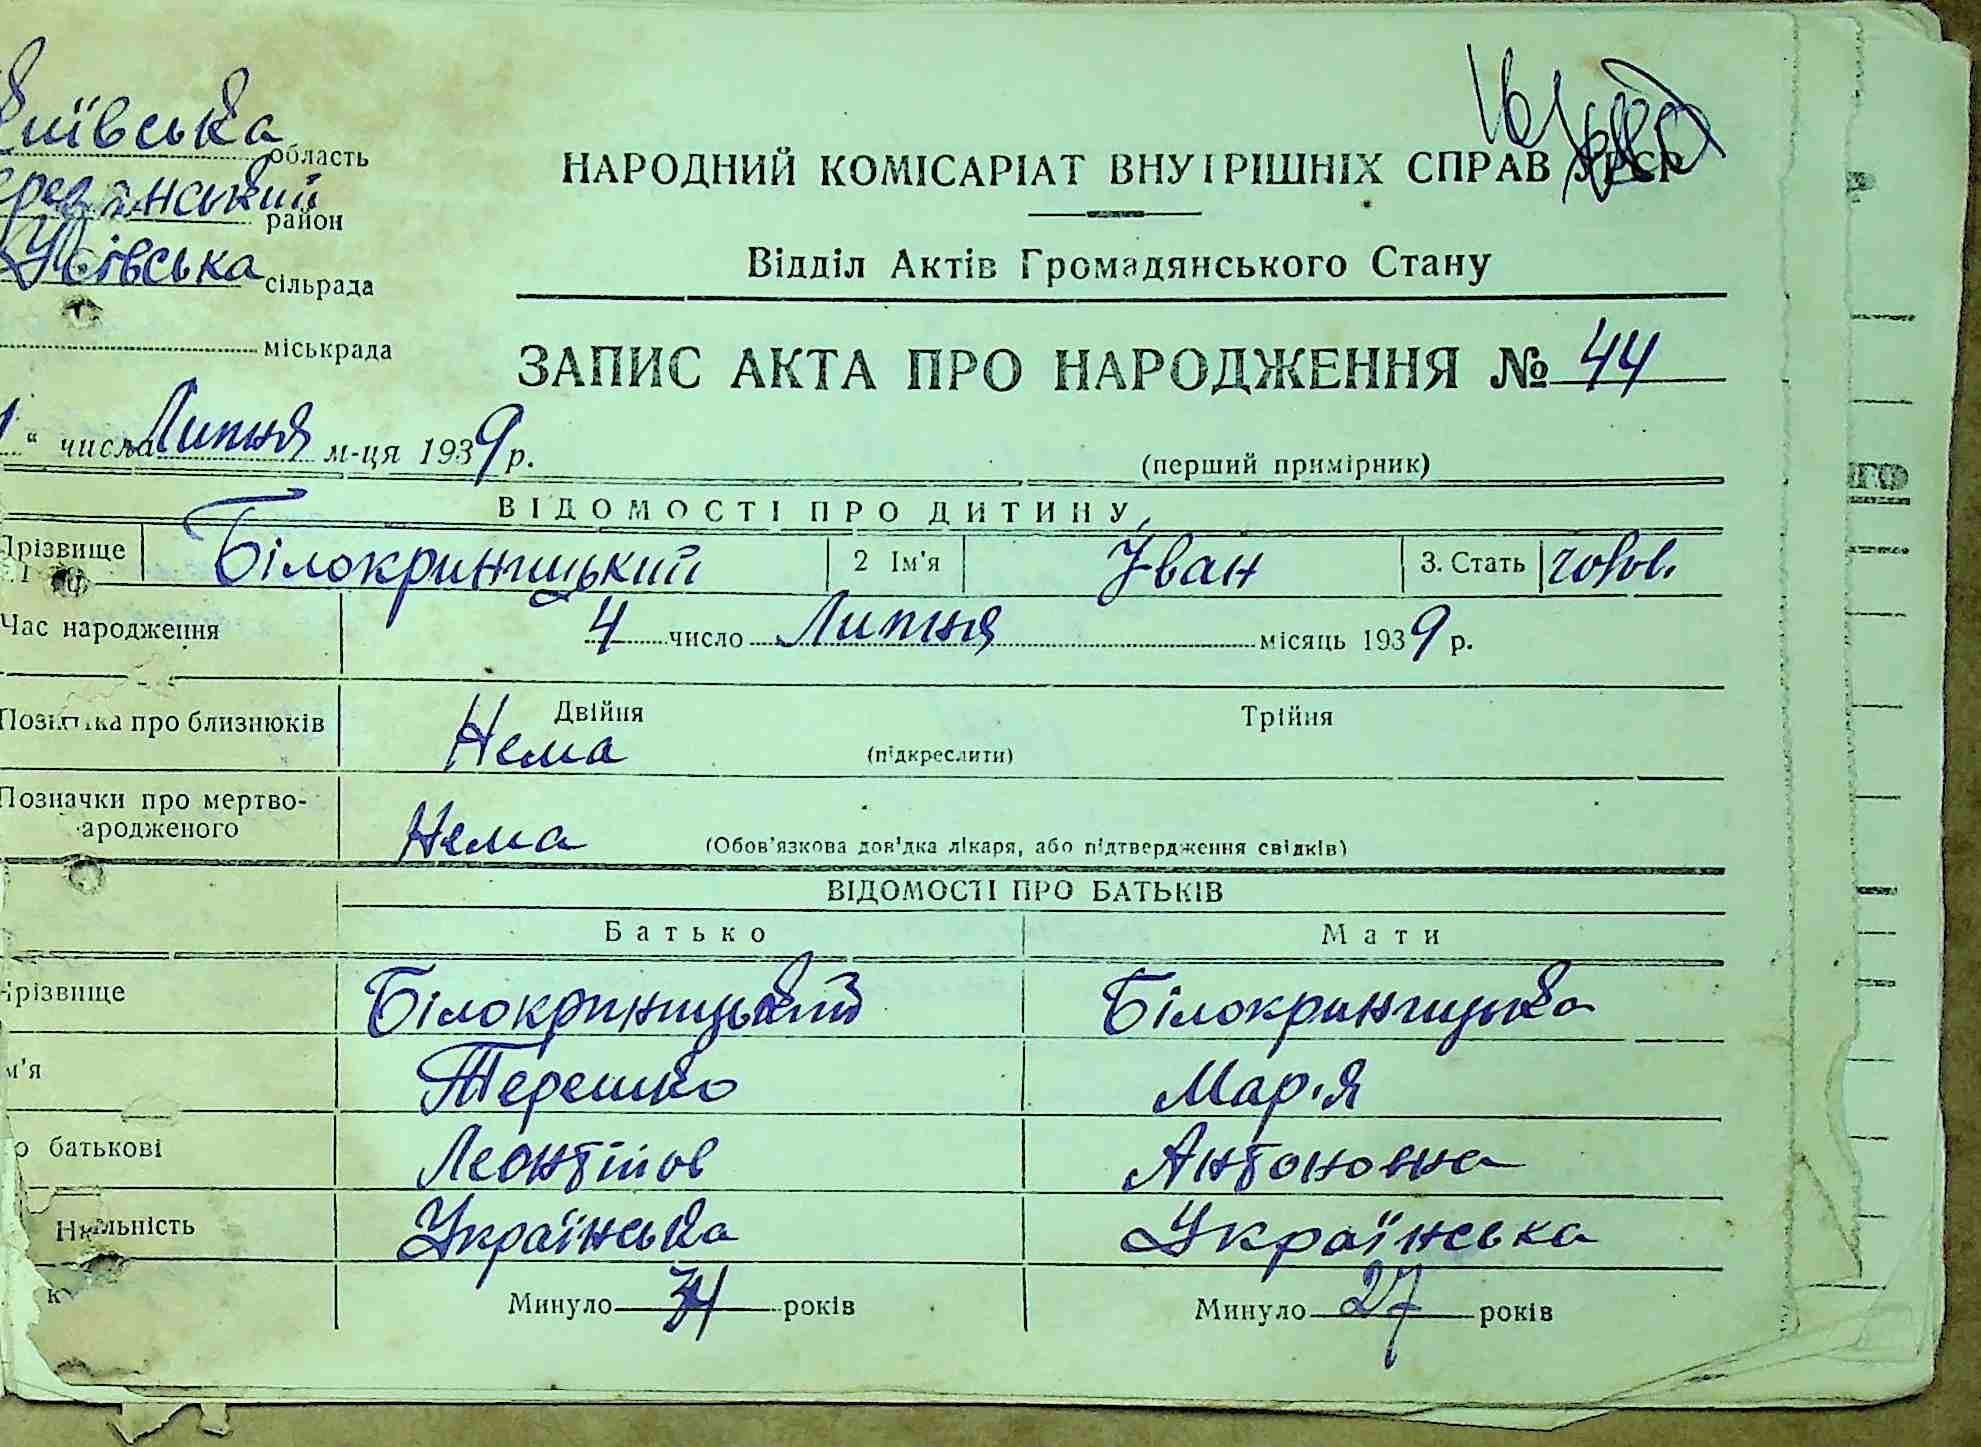 Київська область
район
Усівська сільрада
міськрада
НАРОДНИЙ КОМІСАРІАТ ВНУТРІШНІХ СПРАВ УРСР
Відділ Актів Громадянського Стану
ЗАПИС АКТА ПРО НАРОДЖЕННЯ № 44
“ числа Липня м-ця 1939 р.
(перший примірник)
ВІДОМОСТІ ПРО ДИТИНУ
Прізвище Білокриницький 2 Ім'я Іван 3. Стать чолов.
Час народження 4 число Липня місяць 1939 р.
Позначка про близнюків Нема Двійня Трійня
(підкреслити)
Позначки про мертво-
народженого Нема (Обов'язкова довідка лікаря, або підтвердження свідків)
ВІДОМОСТІ ПРО БАТЬКІВ
Батько Мати
Прізвище Білокриницький Білокриницька
м'я Терешко Марія
о батькові Леонтійов Антоновна
Українська Українська
Минуло років Минуло 27 років